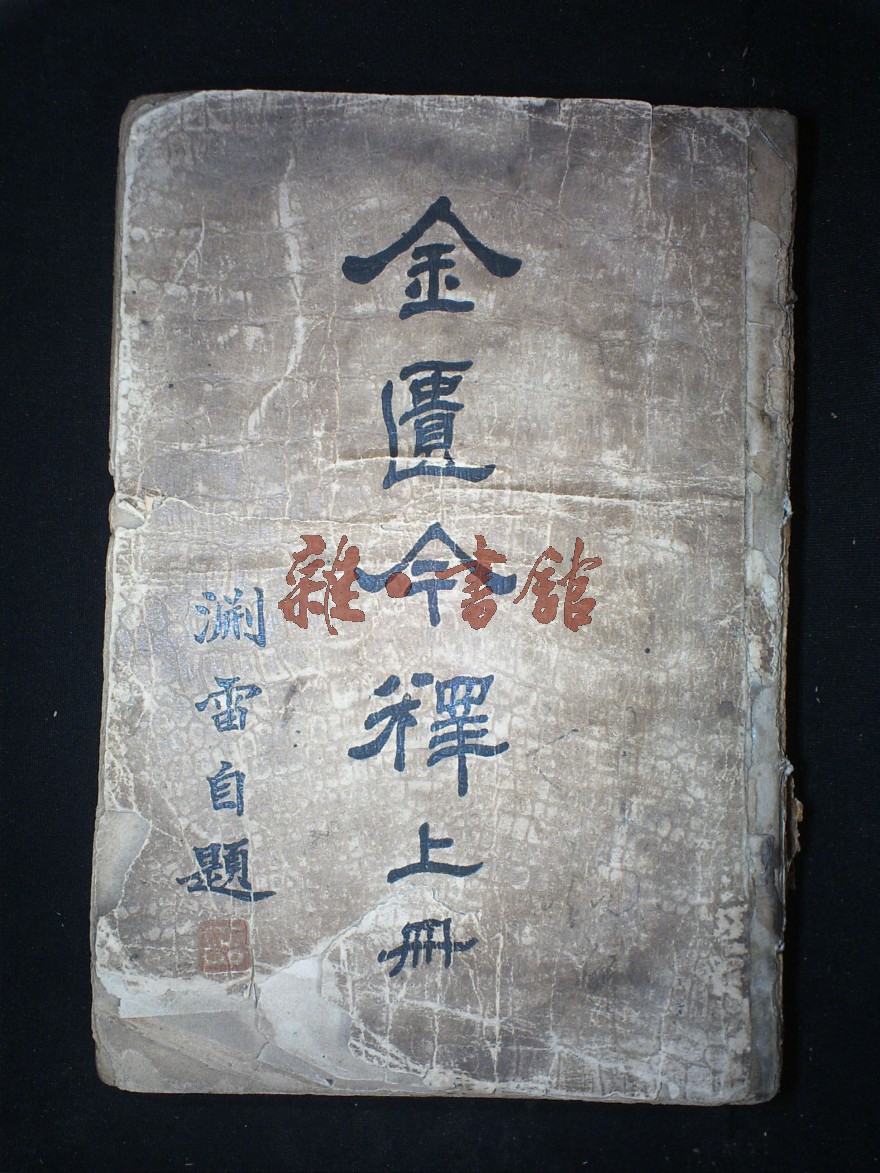 金匱今釋上冊
淵雷自題
雜·書館